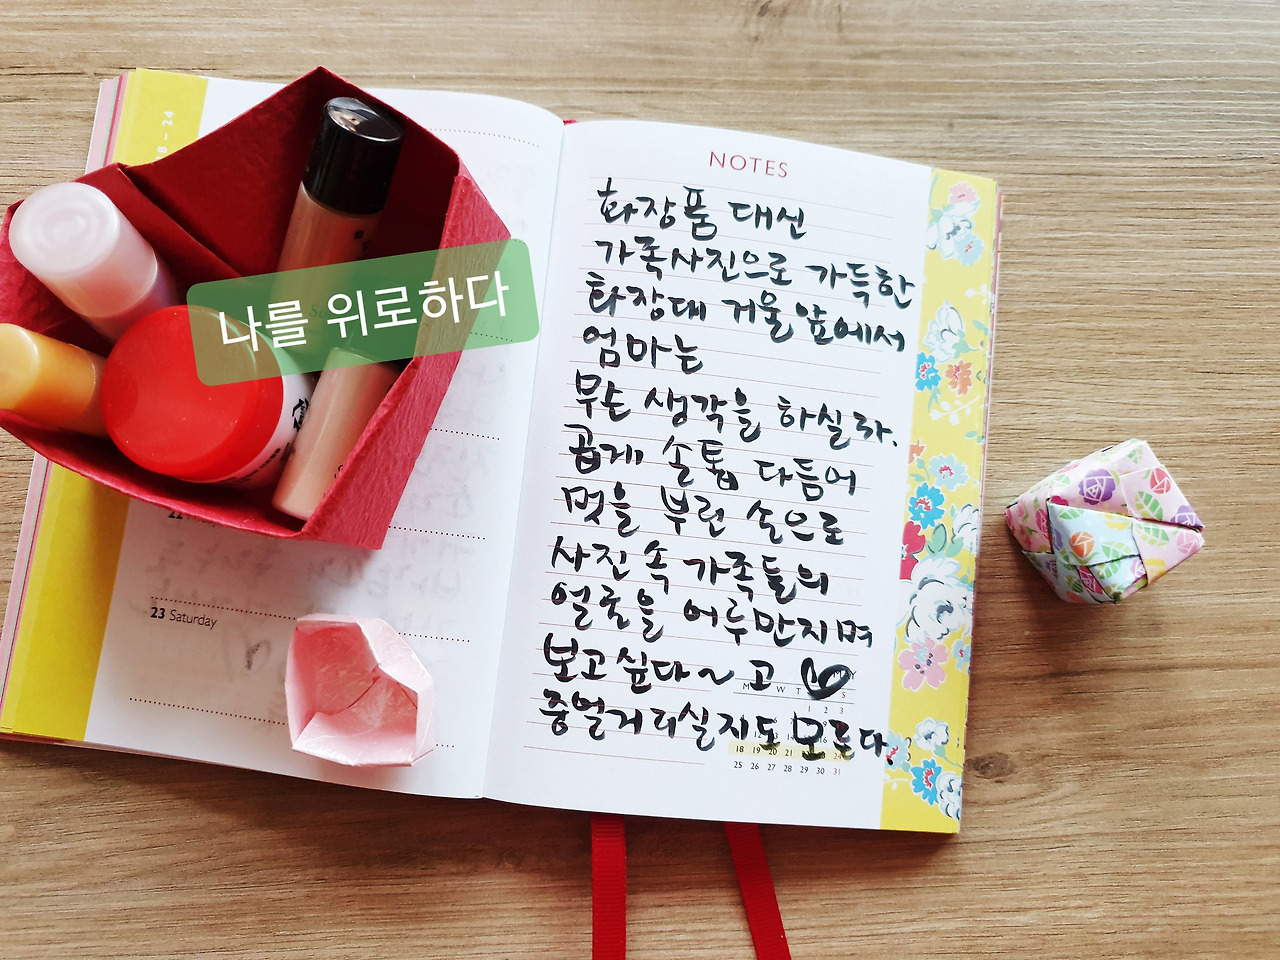 나를 위로하다
23 Saturday
NOTES
화장품 대신
가족사진으로 가득한
화장대 거울 앞에서
엄마는
무슨 생각을 하실라.
곱게 손톱 다듬어
멋을 부린 손으로
사진 속 가족들의
얼굴을 어루만지며
보고 싶다~ 고
중얼거리실지도 모른다.
18 19 20 21 22 23 24
25 26 27 28 29 30 31